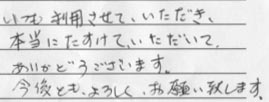 いつも利用させて、いただき、
本当にたすけて、いただいて、
ありがどうございます。
今後とも、よろしく、お願い致します。